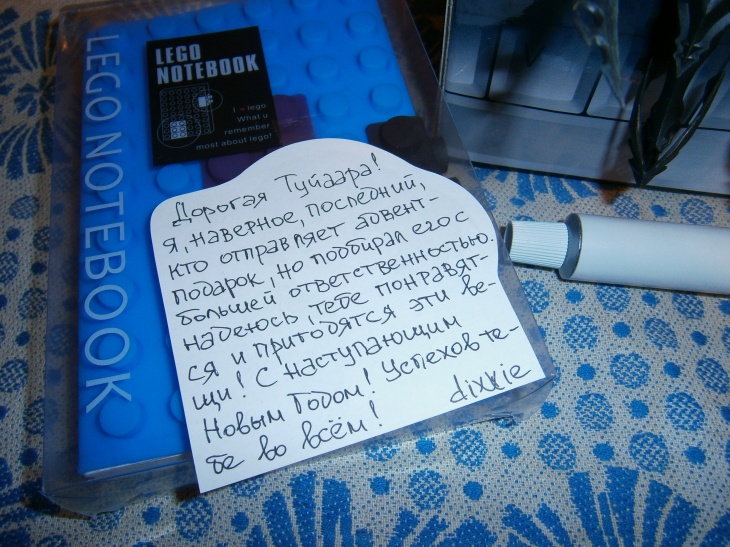 LEGO NOTEBOOK
LEGO
NOTEBOOK
I → lego
What u
remember
most about lego?
Дорогая Туйаара!
я, наверное, последний,
кто отправляет адвент-
подарок, но подбирал его с
большей ответственностью.
надеюсь, тебе понравят-
ся и пригодятся эти ве-
щи! С наступающим
Новым Годом! Успехов те-
бе во всём!
dixxie